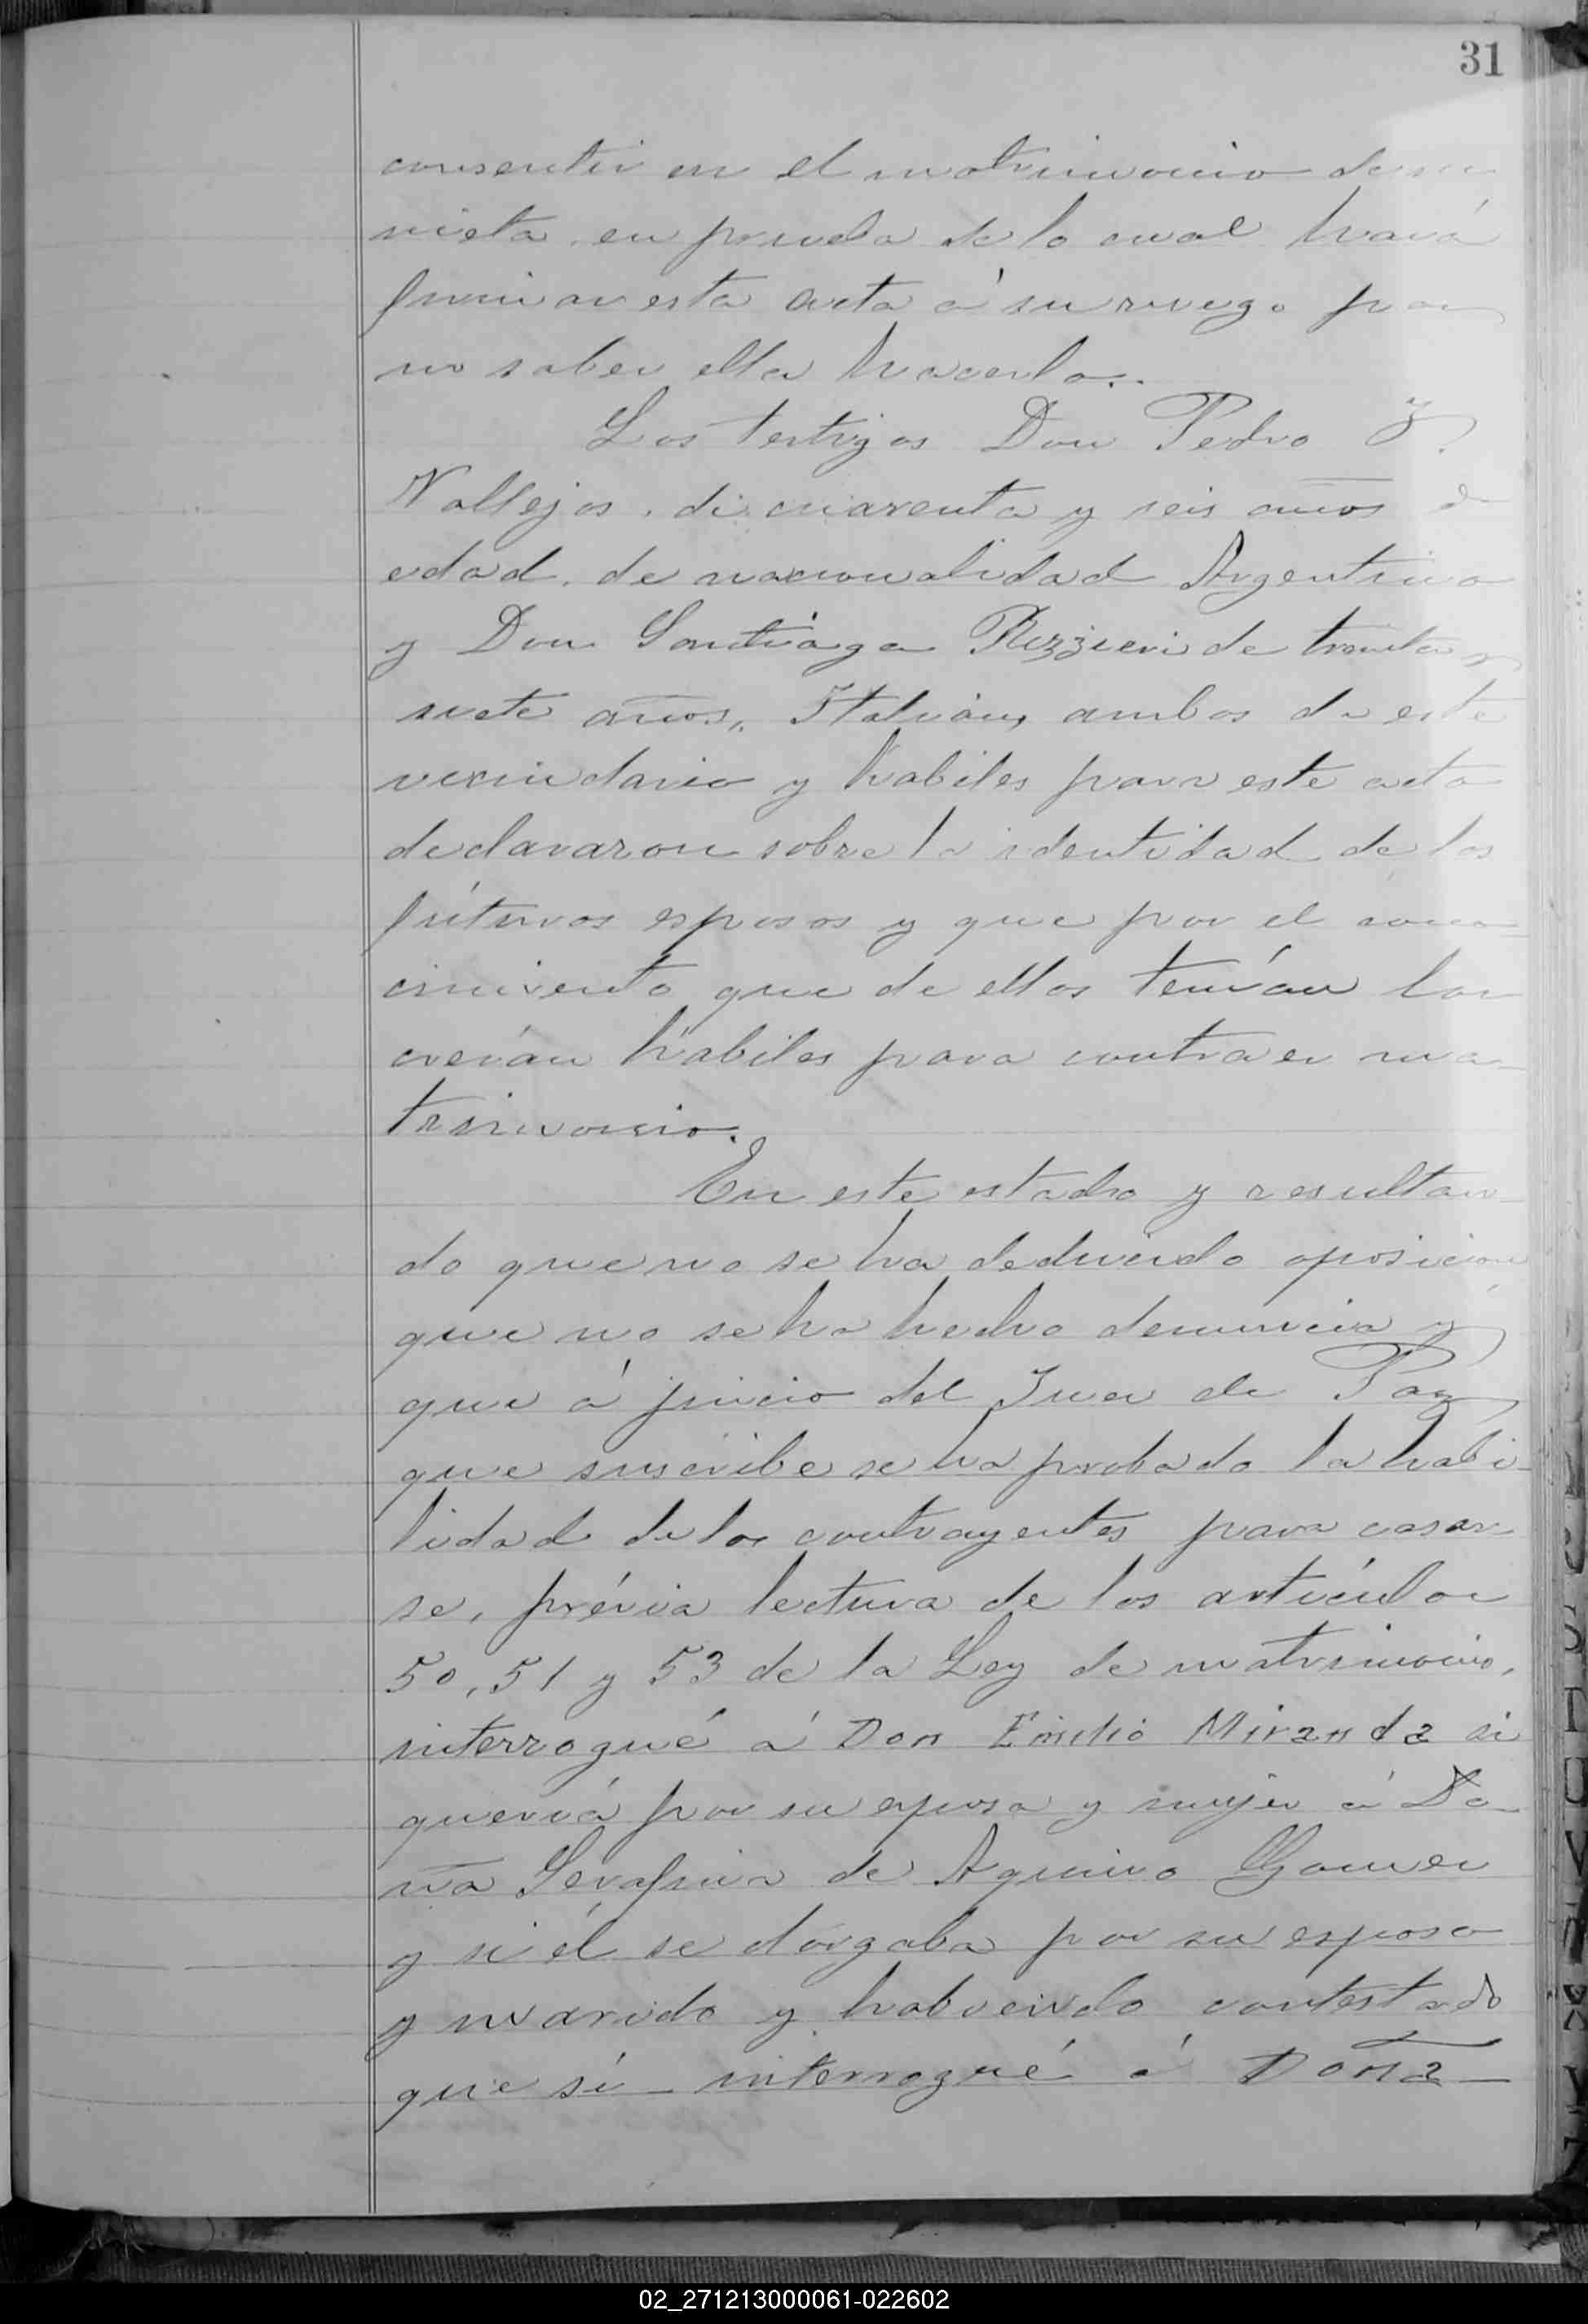 31
consentir en el matrimonio de su
nieta, en prueba de lo cual hará
firmar esta acta á su ruego por
no saber ella hacerlo.
Los testigos Don Pedro J.
Vallejos, de cuarenta y seis años de
edad, de nacionalidad Argentino
y Don Santiago Rizzieri de treinta y
siete años, Italiano, ambos de este
vecindario y habiles para este acto
declararon sobre la identidad de los
fúturos esposos y que por el cono-
cimiento que de ellos tenían los
creían hábiles para contraer ma-
trimonio.
En este estado y resultan-
do que no se ha deducido oposicion
que no se ha hecho denuncia y
que á juicio del Juez de Paz
que suscribe se ha probado la habi-
lidad de los contrayentes para casar-
se, prévia lectura de los artículos
50, 51 y 53 de la Ley de matrimonio,
interrogué á Don Emilio Miranda si
quería por su esposa y mujer á Do-
ña Serafina de Aquino Gomez
y si él se otorgaba por su esposo
y marido y habiendo contestado
que sí interrogué á Doña
02_271213000061-022602